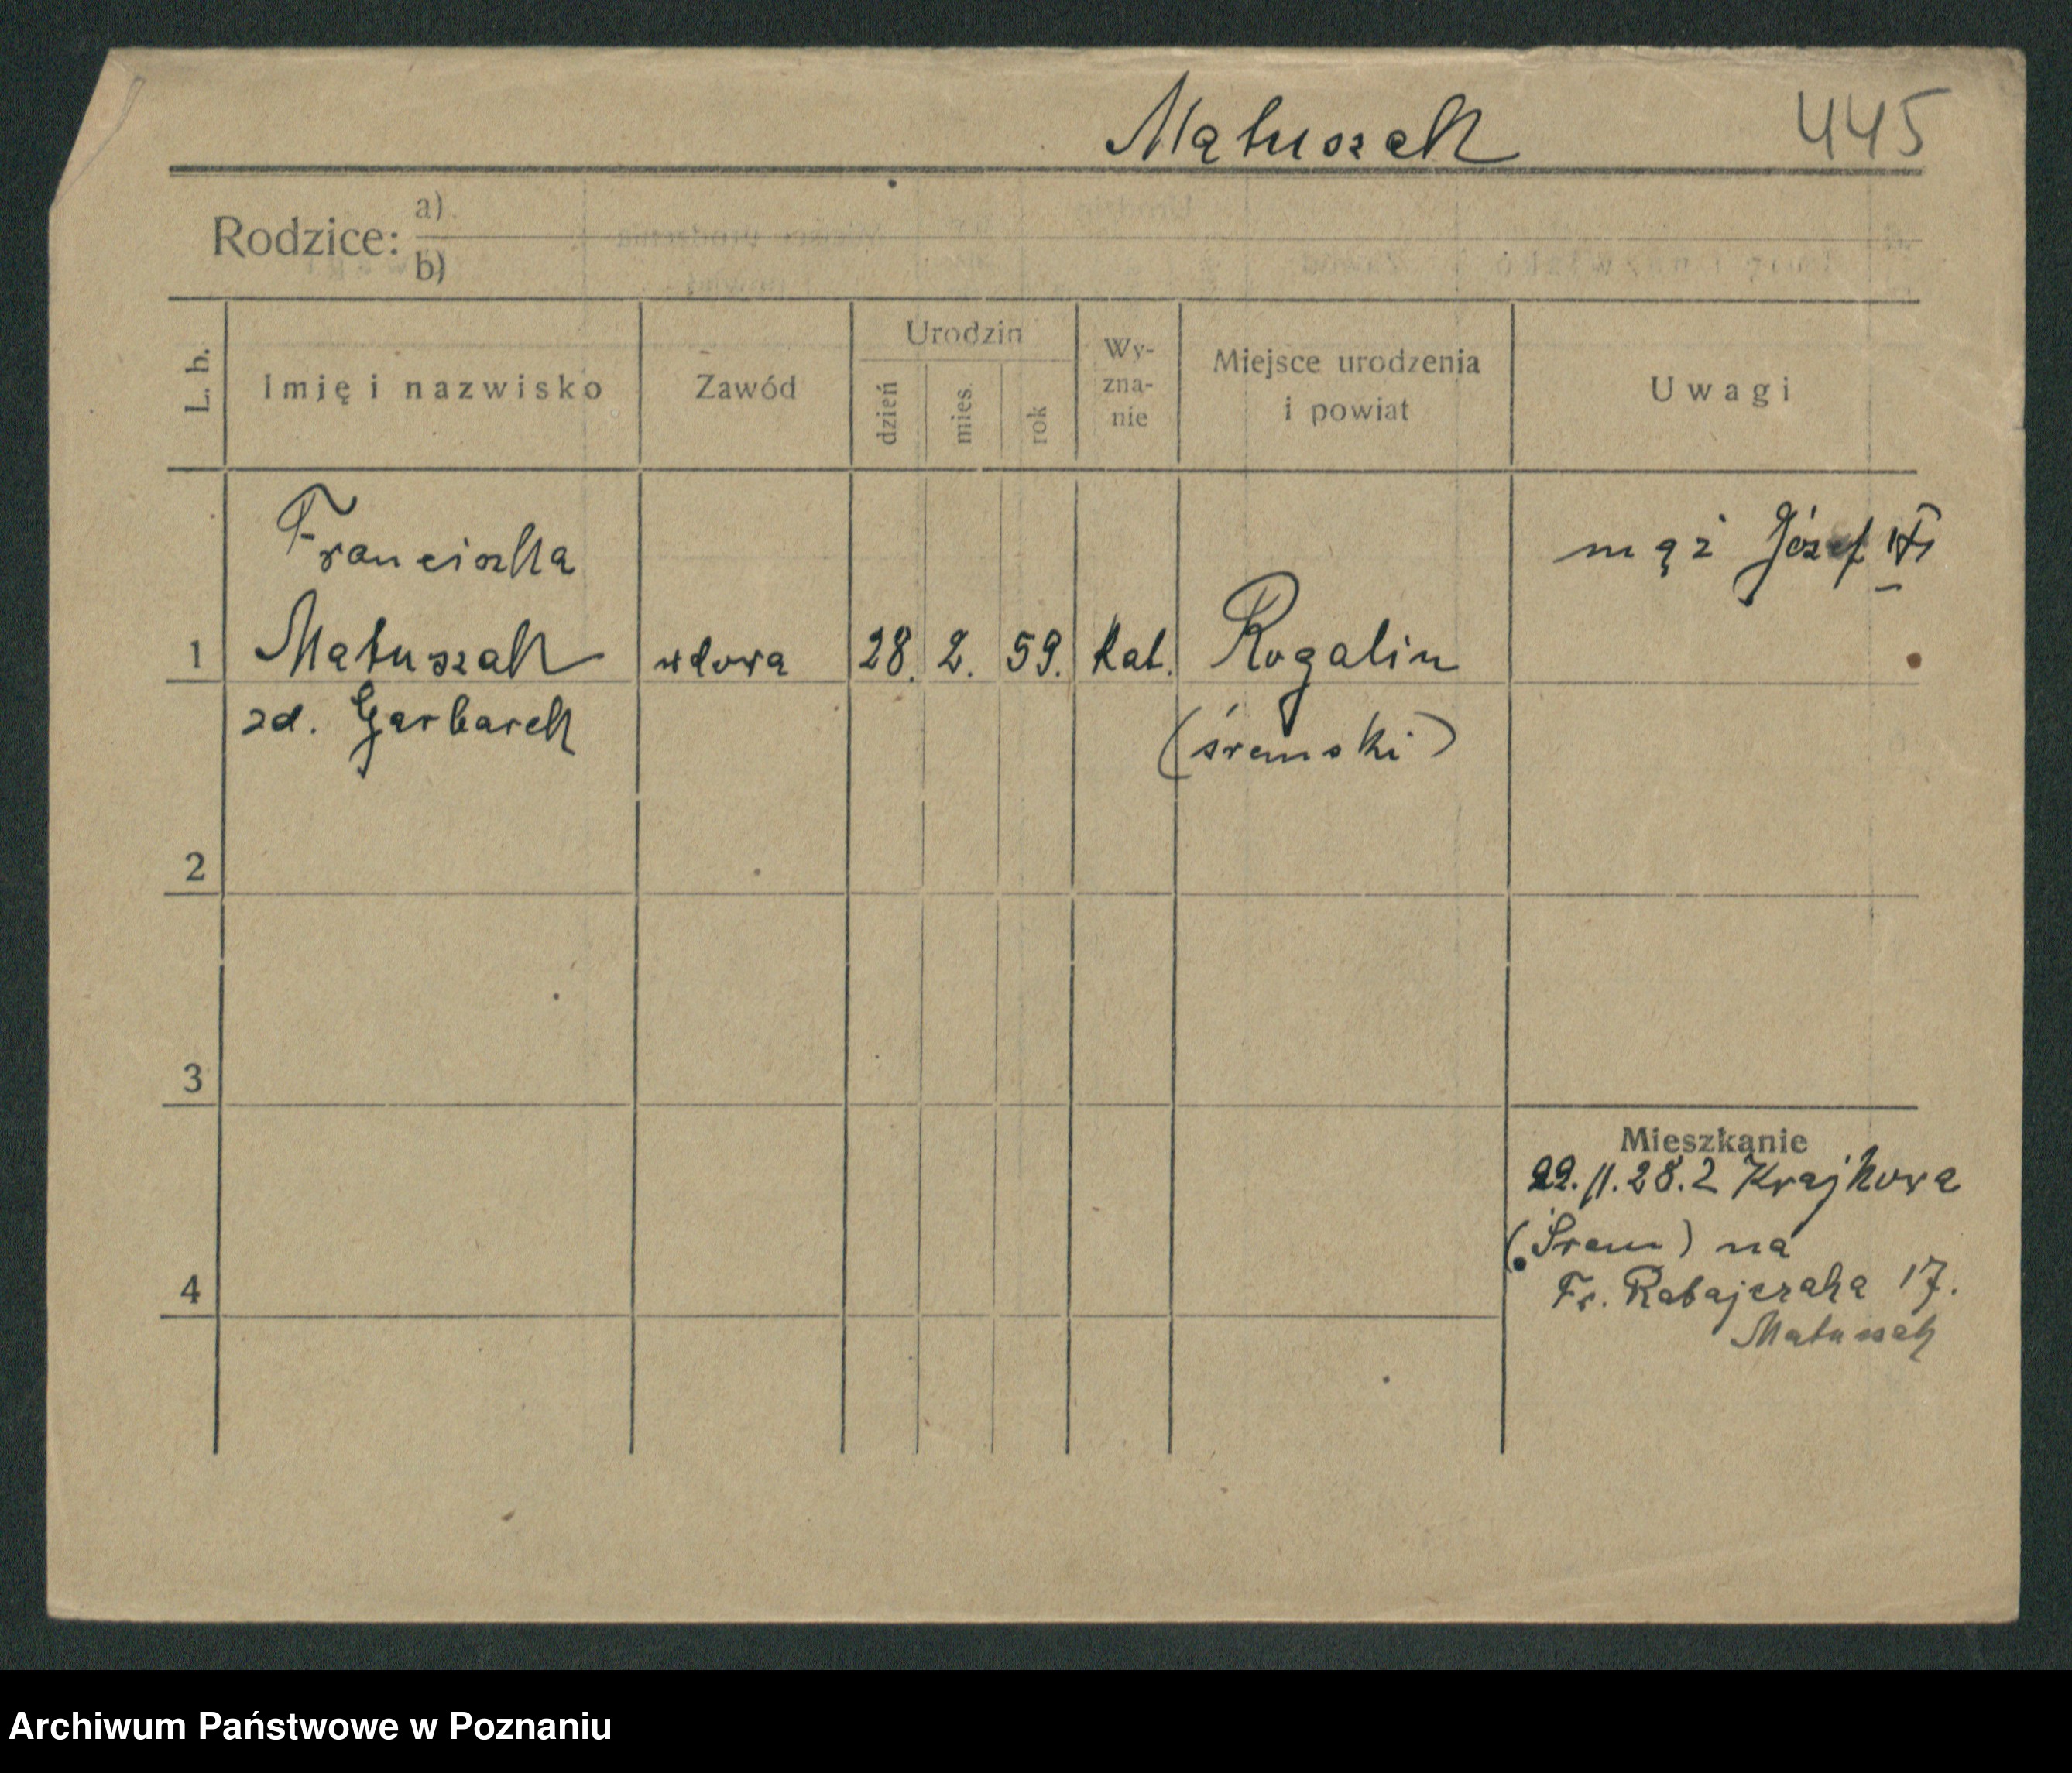 Matuszak 445
Rodzice: a)
b)
L. b. Imię i nazwisko Zawód Urodzin dzień mies. rok Wy-zna-nie Miejsce urodzenia i powiat Uwagi
Franciszka mąż Józef
1 Matuszak wdowa 28. 2. 59. kat. Rogalin
zd. Garbarek (śremski)
2
3
Mieszkanie
22.11.28.z Krajkowa
(Śrem) na
4 Fr. Ratajczaka 17.
Matuszak
Archiwum Państwowe w Poznaniu